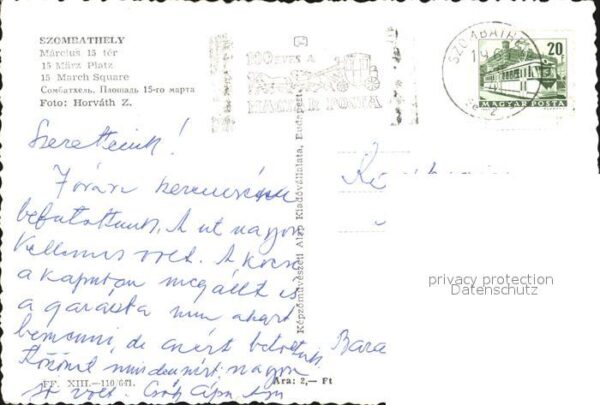 SZOMBATHELY
Március 15 tér
15 März Platz
15 March Square
Сомбатхель, Площадь 15-го марта
Foto: Horváth Z.
100 ÉVES A
MAGYAR POSTA
SZOMBATHELY
20
MAGYAR POSTA
Szeretteink!
befutottunk. A út nagyon
kellemes volt. A kocsi
a kapuban megállt és
a garázsba nem akart
bemenni, de azért betoltuk
Köszönöm mindenért, nagyon
jó volt.
Képzőművészeti Alap Kiadóvállalata, Budapest
Bara
privacy protection
Datenschutz
FF. XIII.—110/641.
Ára: 2,— Ft